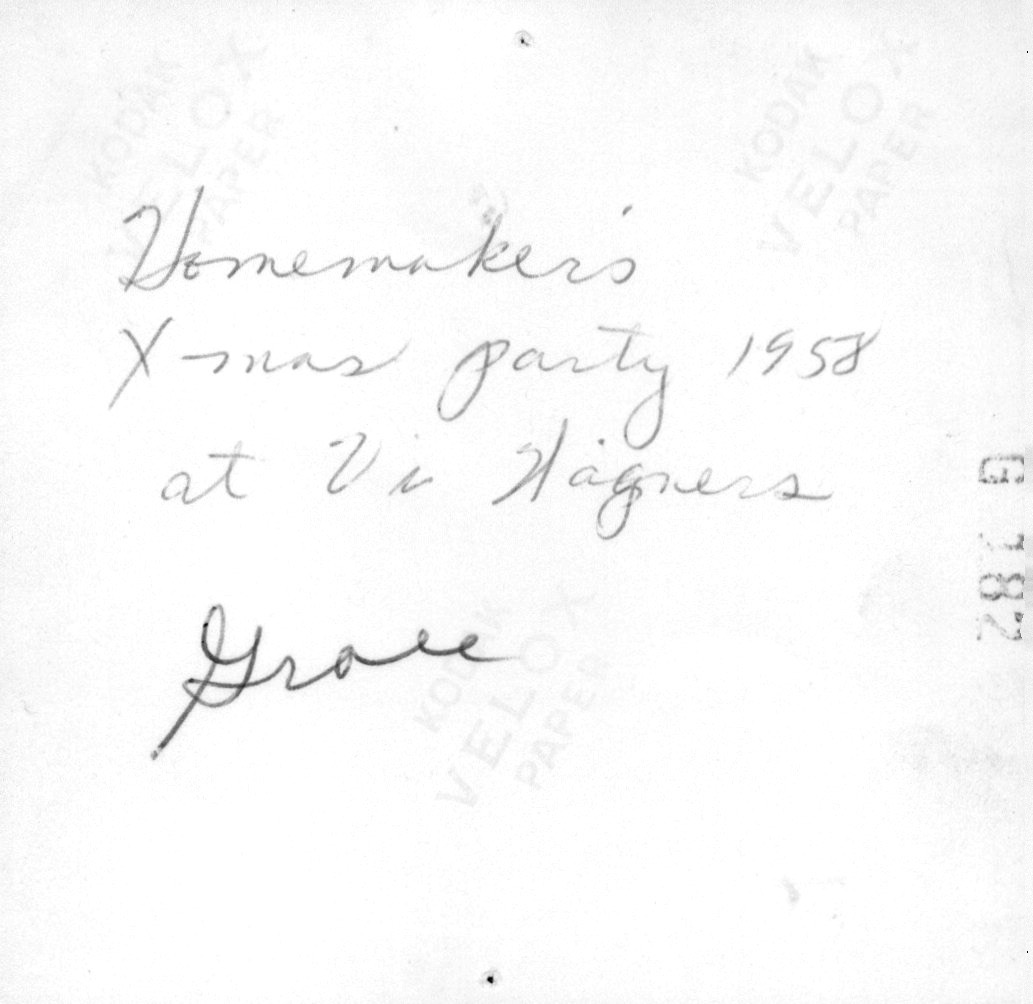 KODAK
VELOX
PAPER
KODAK
VELOX
PAPER
Homemaker's
X-mas party 1958
at Vi Wagners
G 182
Grace
KODAK
VELOX
PAPER